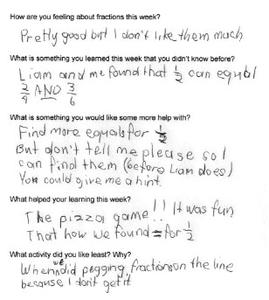 How are you feeling about fractions this week?
Pretty good but I don't like them much
What is something you learned this week that you didn't know before?
Liam and me found that 1/2 can equal
2/4 AND 3/6
What is something you would like some more help with?
Find more equals for 1/2
But don't tell me please so I
can find them (before Liam does)
You could give me a hint.
What helped your learning this week?
The pizza game!! It was fun
That how we found = for 1/2
What activity did you like least? Why?
When we did pegging fractions on the line
because I don't get it